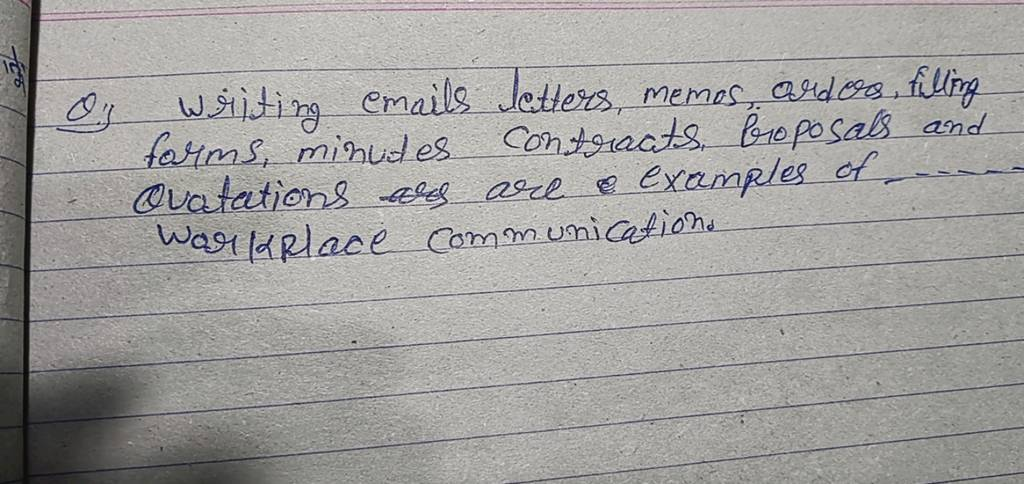 Q1 Writing emails letters, memos, orders, filling
forms, minutes Contracts, Proposals and
Quatations are e examples of ------
Workplace Communication.